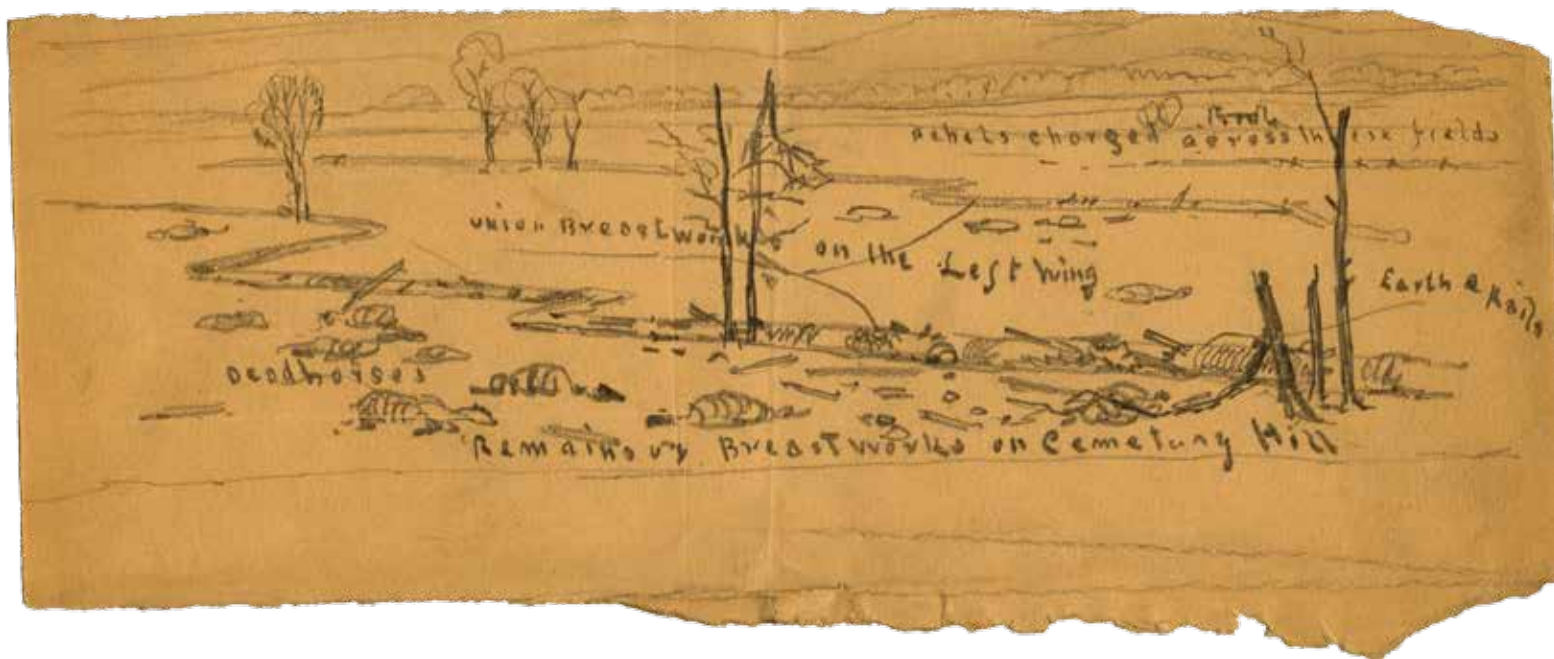 Rebels charged across these fields
Union Breastworks on the Left Wing
Earth & Rails
Dead horses
Remains of Breastworks on Cemetary Hill